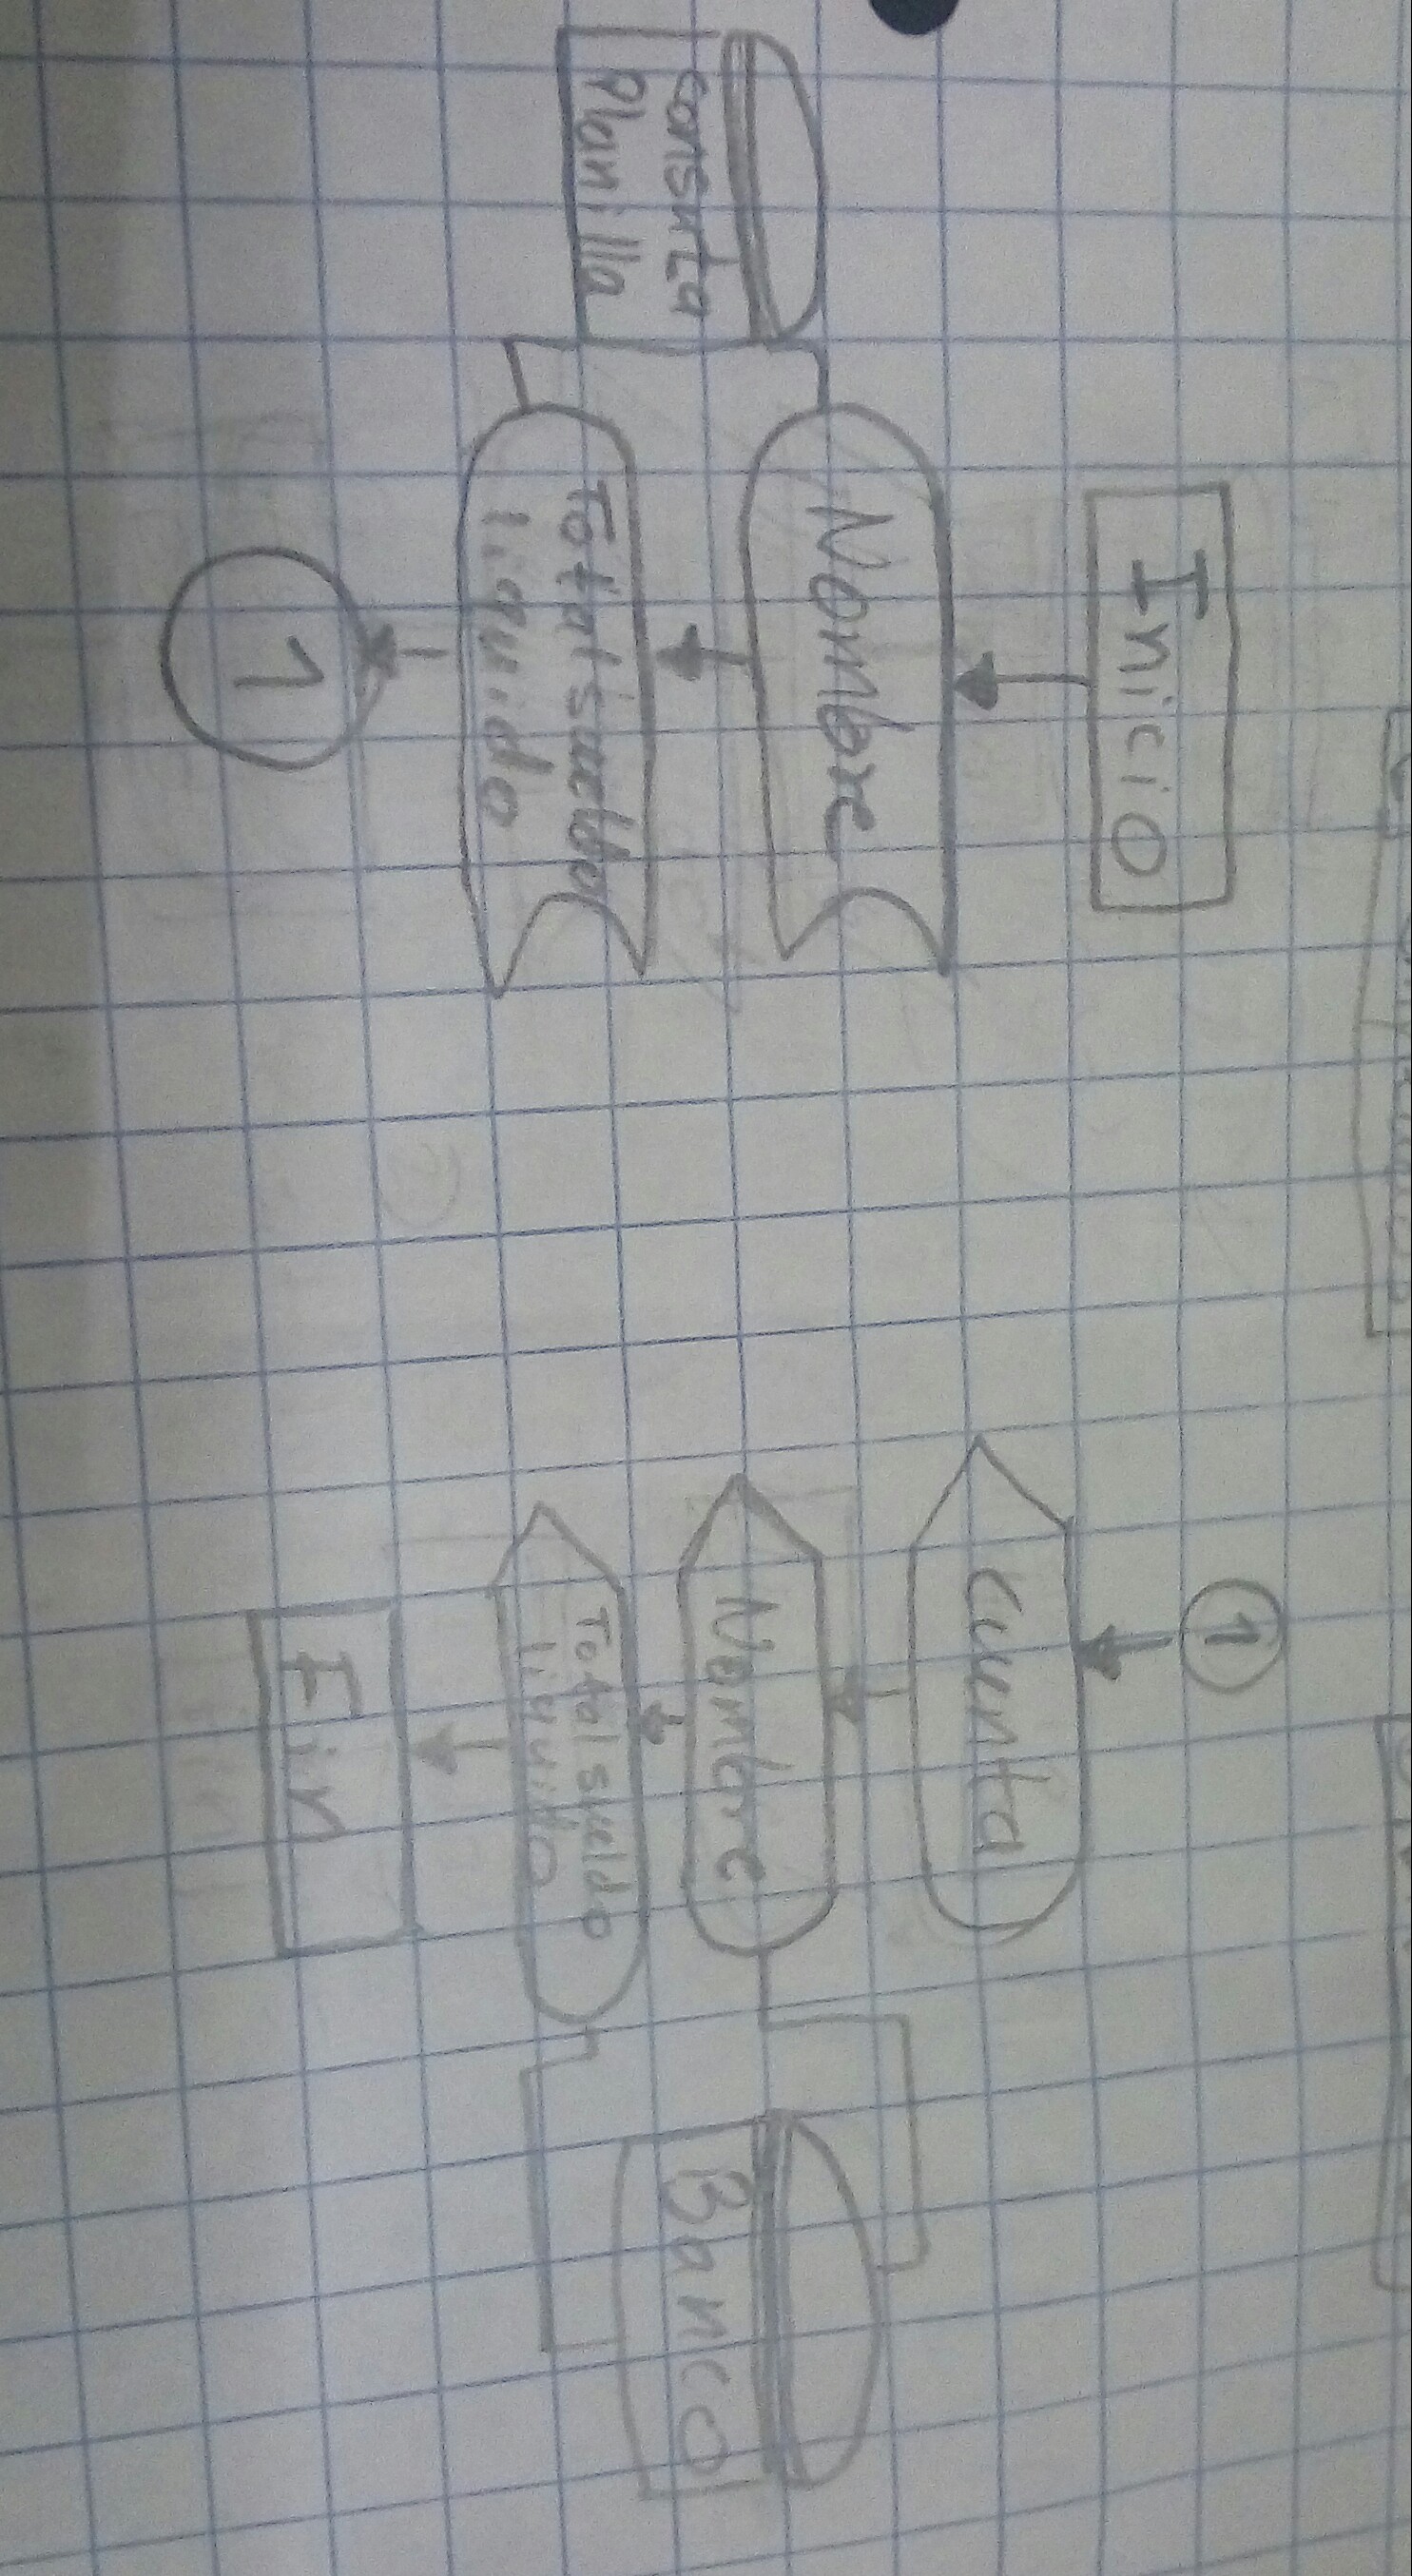 Inicio
Nombre
consuta
Planilla
Total sueldo
liquido
1
1
cuenta
Nombre
Banco
Total sueldo
liquido
Fin